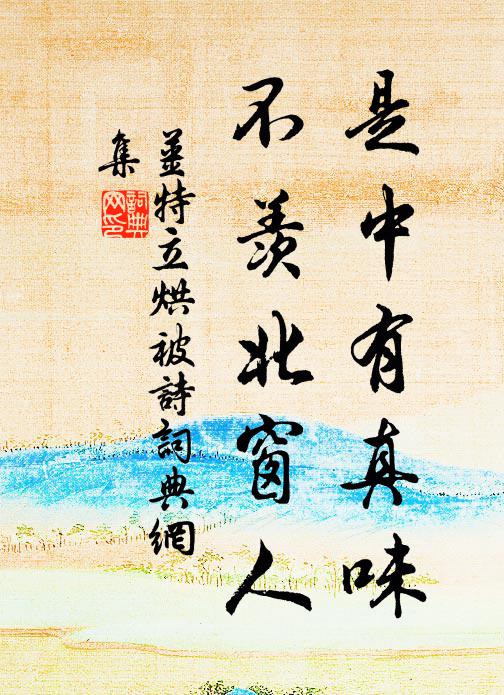 是中有真味
不羨北窗人
姜特立烘被詩詞典網
集
詞典
网印